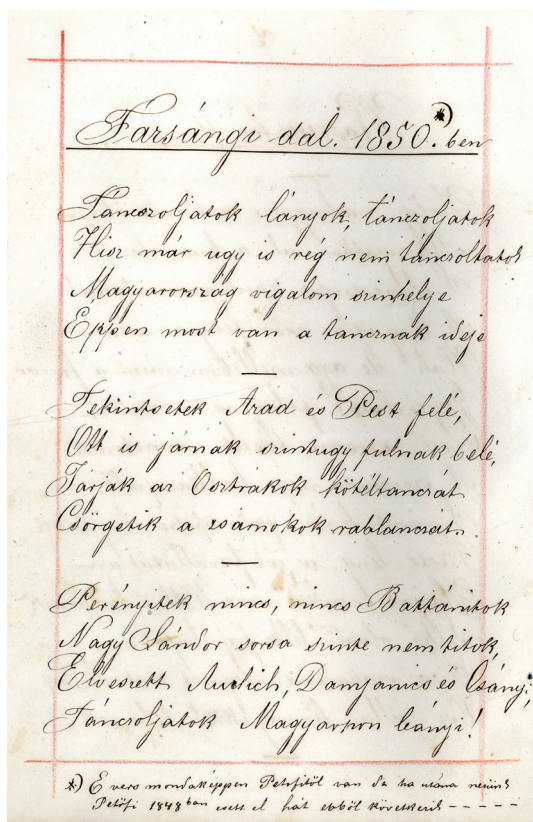 Fársángi dal. 1850.*) ben
Táncoljatok lányok, tánczoljatok
Hisz már ugy is rég nem tánczoltatok
Magyarország vigalom szinhelye
Éppen most van a táncznak ideje
Tekintsetek Arad és Pest felé,
Ott is járnak szintugy fulnak belé,
Járják az Osztrákok kötéltanczát
Csörgetik a zsarnokok rablanczát.
Perényitek nincs, nincs Battánitok
Nagy Sándor sorsa szinte nem titok,
Elveszett Aulich, Damjanics és Csányi,
Tánczoljatok Magyarhon leányi!
*) E vers mondaképpen Petőfitől van de ha utána nézünk
Petőfi 1848ban esett el hát ebből következik - - - - -